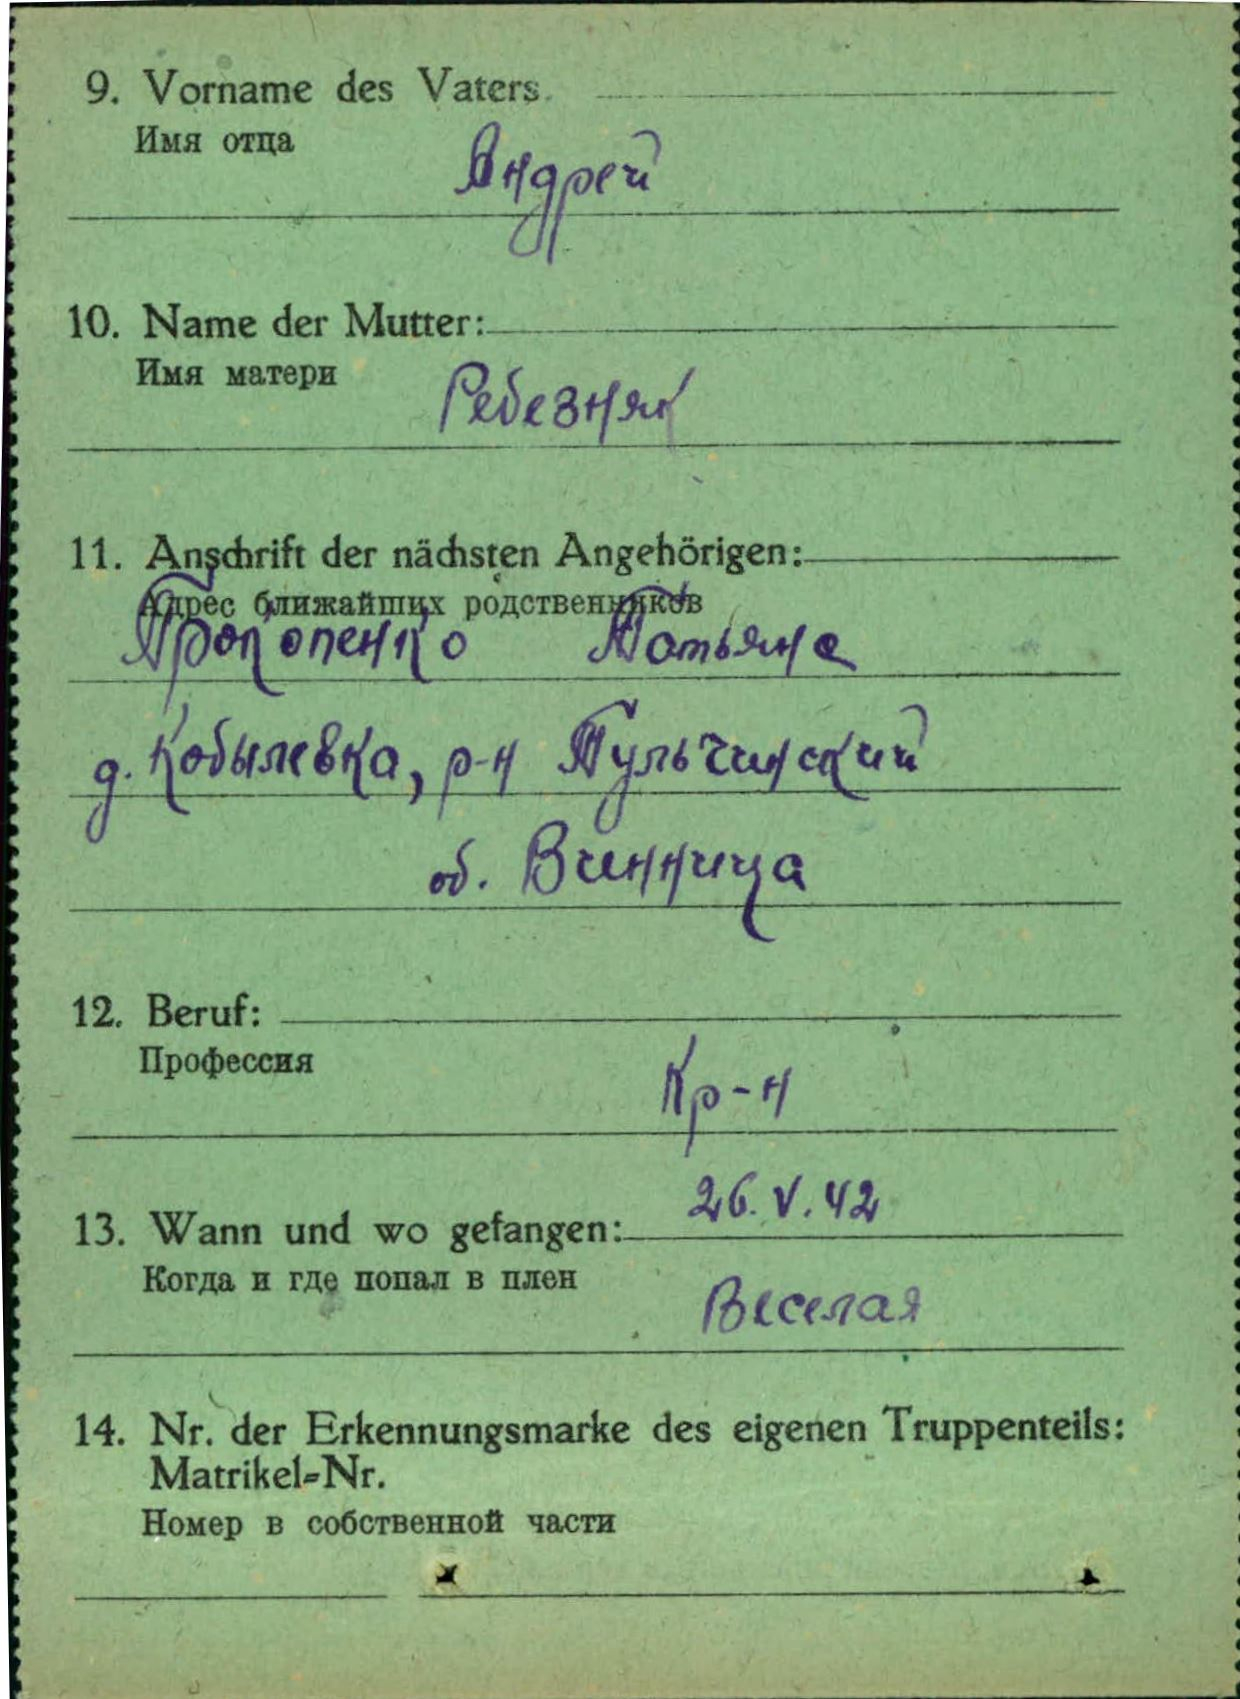 9. Vorname des Vaters.
Имя отца
Андрей
10. Name der Mutter:
Имя матери
Ребезняк
11. Anschrift der nächsten Angehörigen:
Адрес ближайших родственников
Прокопенко Татьяна
д. Кобылевка, р-н Тульчинский
об. Винница
12. Beruf:
Профессия
Кр-н
26.V.42
13. Wann und wo gefangen:
Когда и где попал в плен
Веселая
14. Nr. der Erkennungsmarke des eigenen Truppenteils:
Matrikel-Nr.
Номер в собственной части